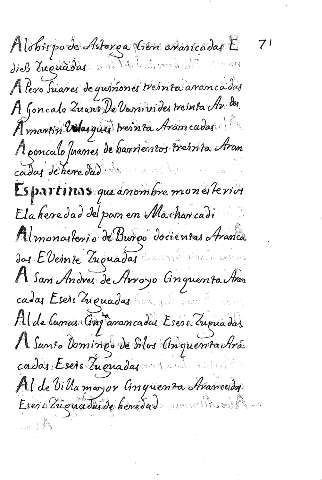 Al obispo de Astorga Cien arancadas E 71
diess Zuguadas
A Pero Juares de quiñones treinta arancadas
A Goncalo Zuans De Vamvides treinta Ar.das
A martin Velasques treinta Arancadas
A goncalo Juanes de barrientos treinta Aran
cadas de heredad
Espartinas que a nombre monesterios
E la heredad del pan en Macharcadi
Al monasterio de Burgo docientas Aranca
das E Veinte Zuguadas
A San Andres de Arroyo Cinquenta Aran
cadas E seis Zuguadas
Al de Camas Cinqta arancadas E seis Zuguadas
A Santo Domingo de Silos Cinquenta Arā
cadas E seis Zuguadas
Al de Villamayor Cinquenta Arancadas
E seis Zuguadas de heredad